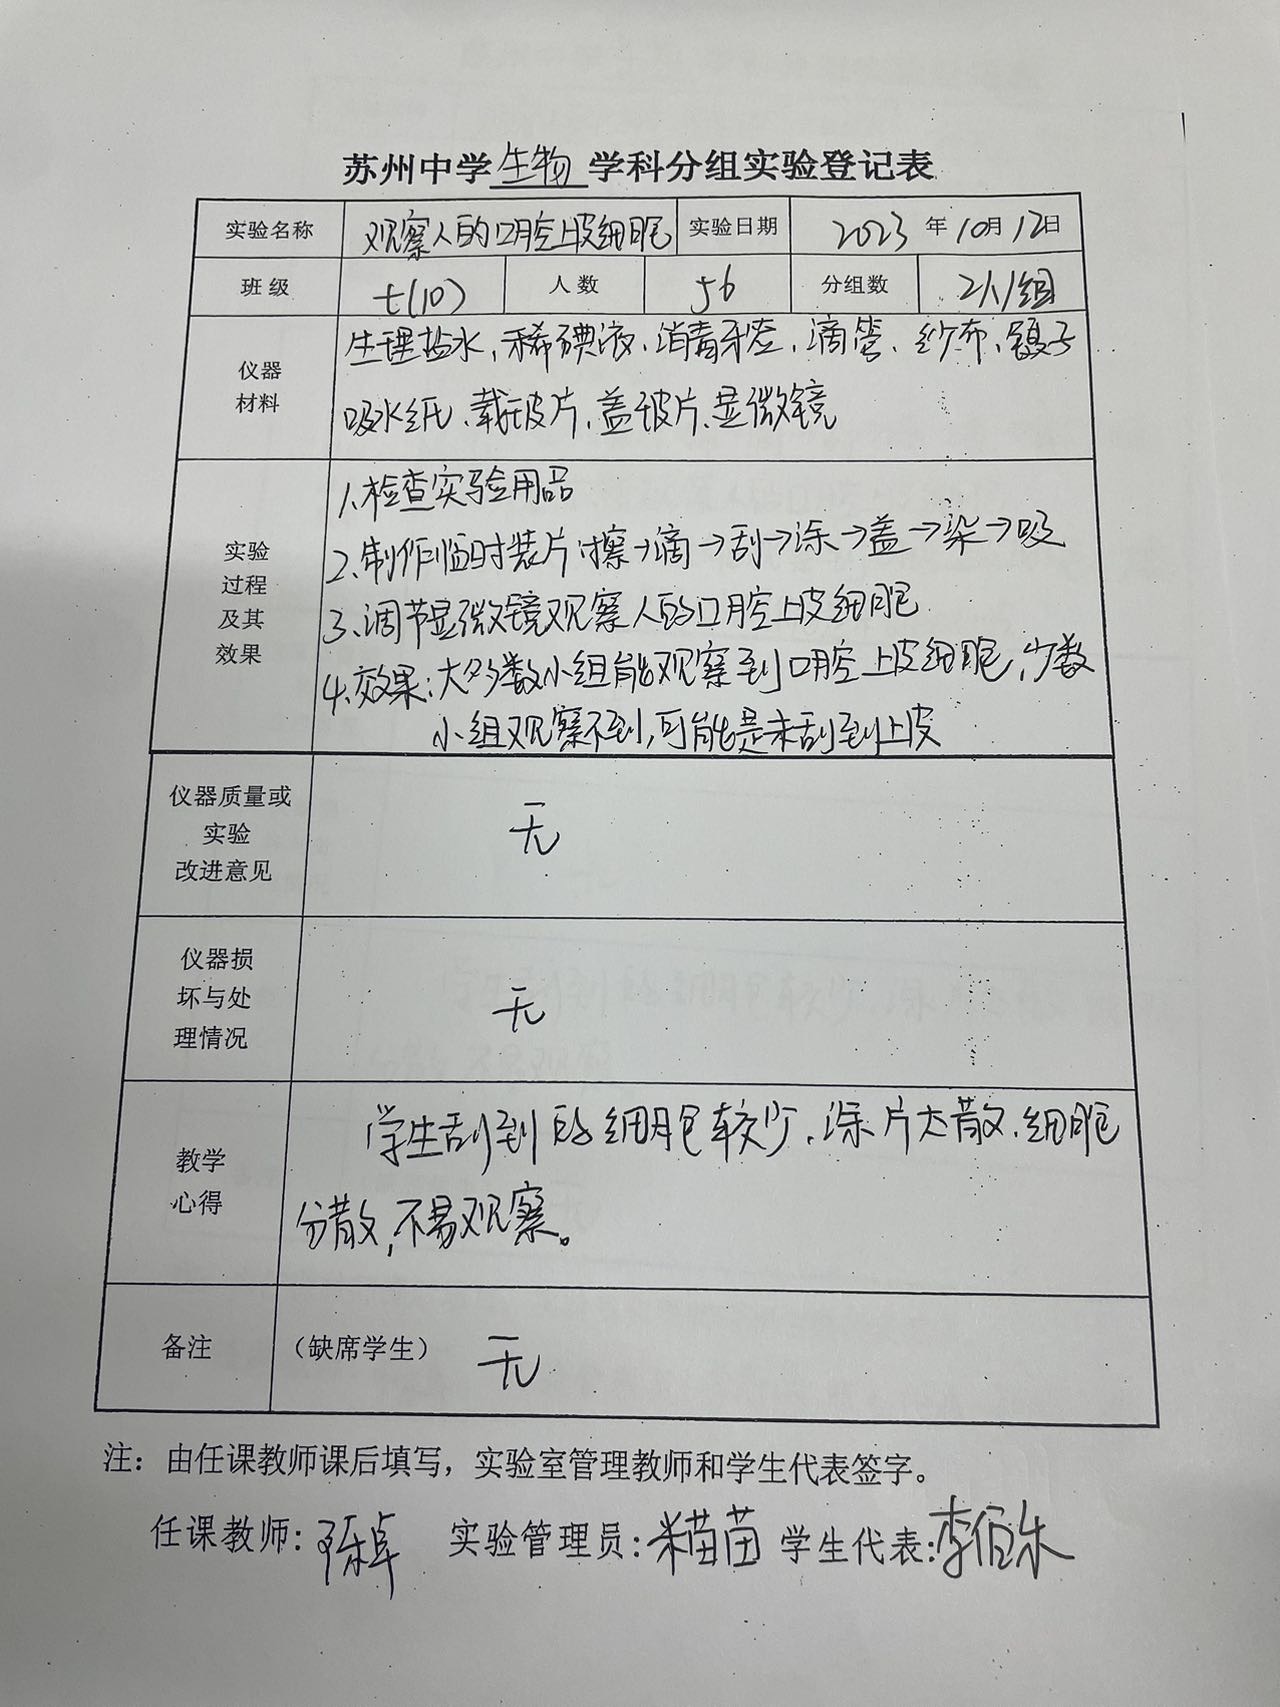 苏州中学生物学科分组实验登记表
实验名称 观察人的口腔上皮细胞 实验日期 2023年10月12日
班级 七(10) 人数 56 分组数 2人/组
仪器材料 生理盐水、稀碘液、消毒牙签、滴管、纱布、镊子
吸水纸、载玻片、盖玻片、显微镜
实验过程及其效果 1、检查实验用品
2、制作临时装片:擦→滴→刮→涂→盖→染→吸
3、调节显微镜观察人的口腔上皮细胞
4、效果:大多数小组能观察到口腔上皮细胞,少数
小组观察不到,可能是未刮到上皮
仪器质量或实验改进意见 无
仪器损坏与处理情况 无
教学心得 学生刮到的细胞较少、涂片太散、细胞
分散,不易观察。
备注 (缺席学生) 无
注：由任课教师课后填写，实验室管理教师和学生代表签字。
任课教师:陈卓 实验管理员: 苗苗 学生代表:李佰